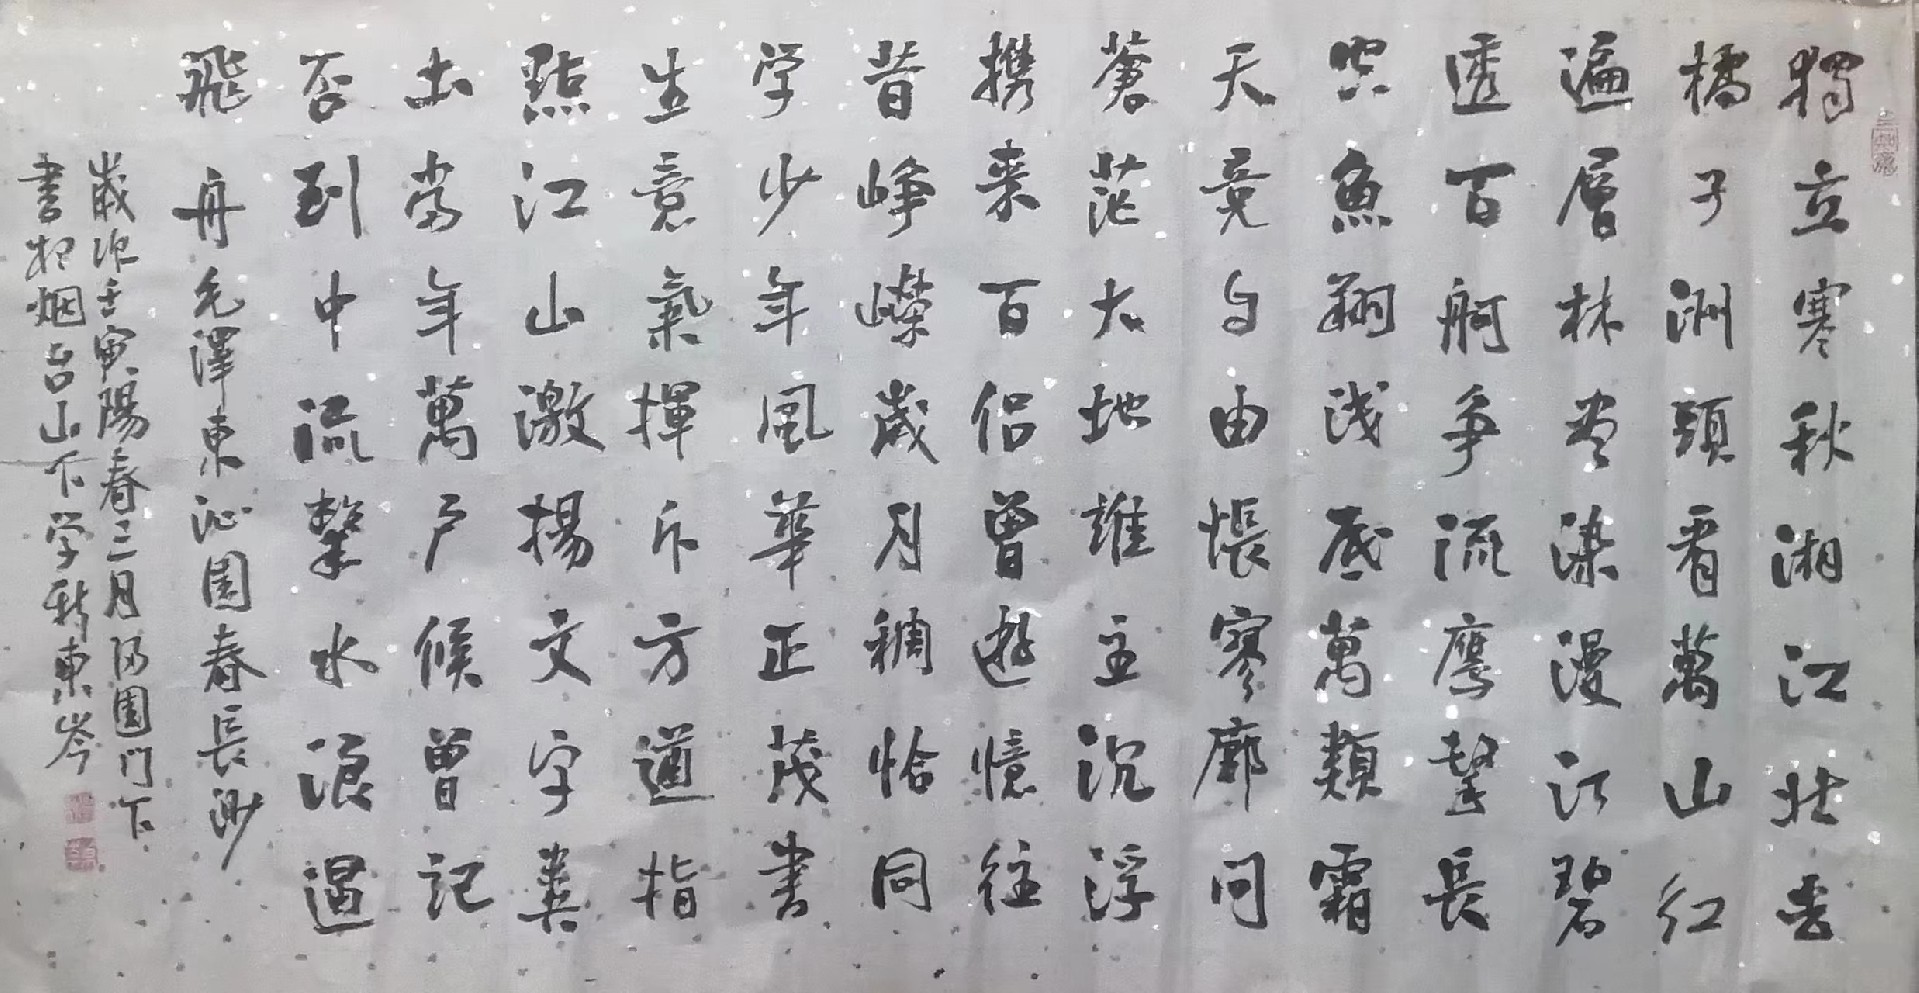 獨立寒秋湘江北去
橘子洲頭看萬山紅
遍層林尽染漫江碧
透百舸争流鹰擊長
空魚翔浅底萬類霜
天竟自由悵寥廓問
蒼茫大地誰主沉浮
携来百侣曾遊憶往
昔峥嶸歲月稠恰同
学少年風華正茂書
生意氣揮斥方遒指
點江山激揚文字糞
土當年萬户候曾記
否到中流擊水浪遏
飛舟毛澤東沁園春長沙
歲次壬寅陽春三月園門下
書於烟台山下学東岑